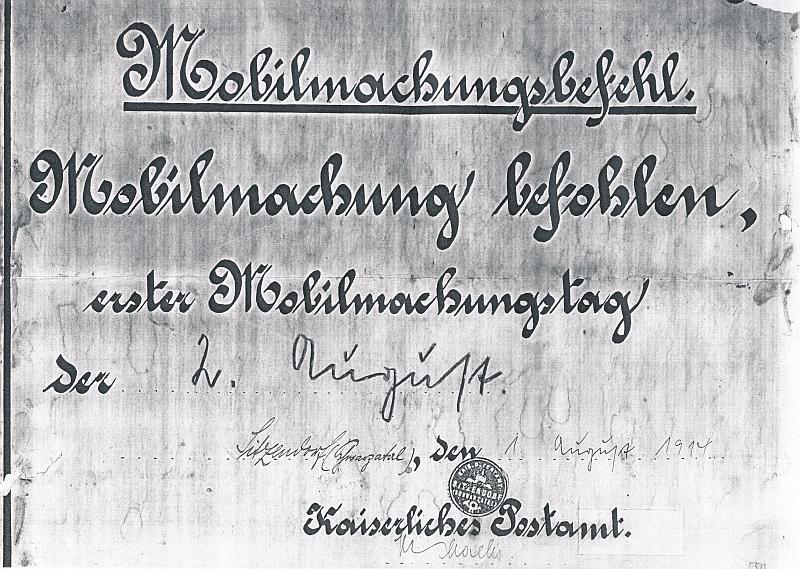 Mobilmachungsbefehl.
Mobilmachung befohlen,
erster Mobilmachungstag
der 2. August.
Sitzendorf (Schwarzatal), den 1. August 1914
Kaiserliches Postamt.